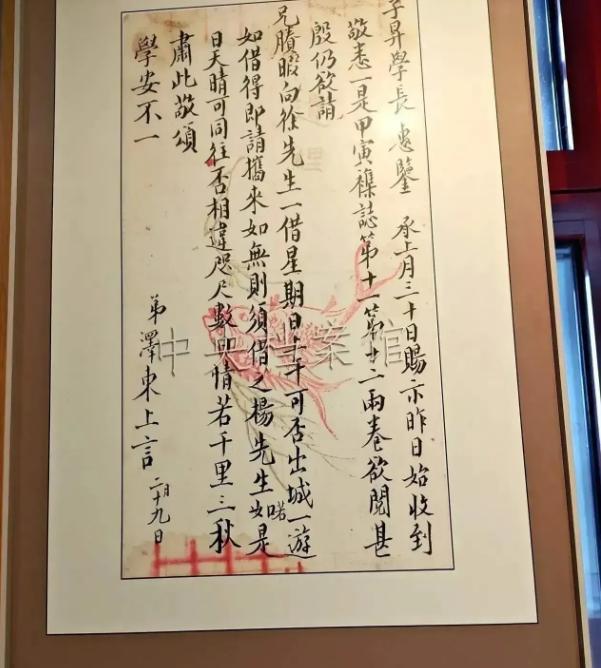 子昇學長惠鑒 承上月三十日賜示昨日始收到
敬悉一是甲寅襍誌第十一第十二兩卷欲閱甚
殷仍欲請
兄賸暇向徐先生一借星期日上午可否出城一遊
如借得即請攜來如無則須借之楊先生 是
日天晴可同往否相違咫尺數日情若千里三秋
肅此敬頌
學安不一
弟澤東上言 二月十九日